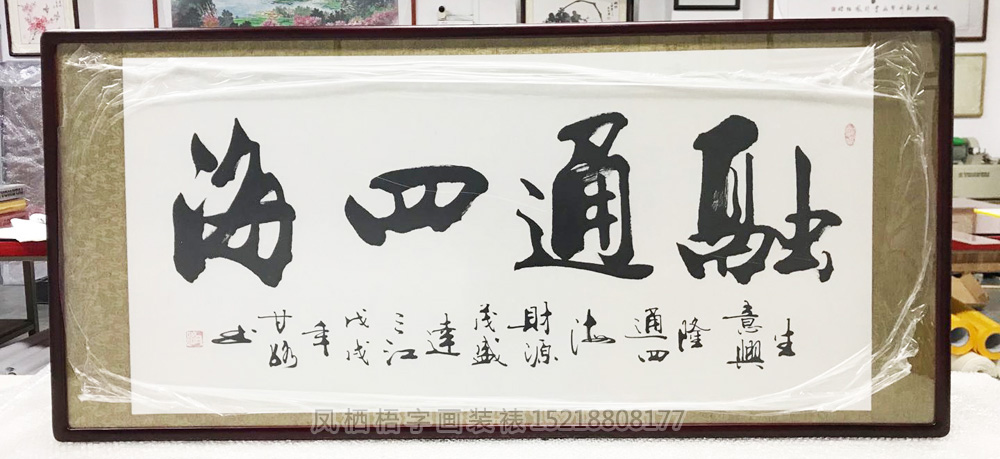 融通四海
生意興隆通四海財源茂盛達三江戊戌年甘駱书
凤栖梧字画装裱15218808177